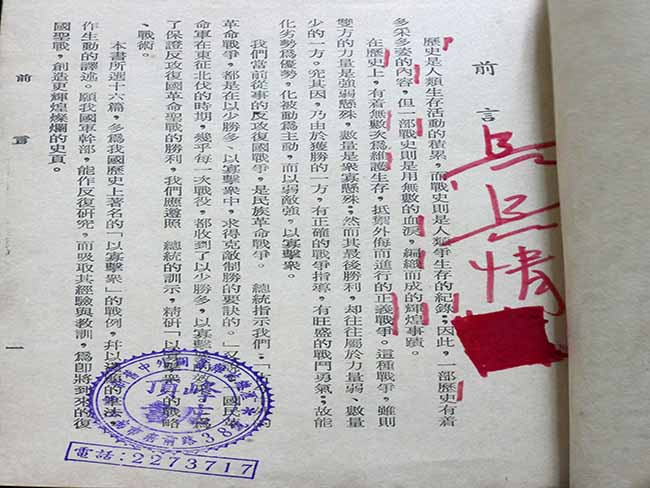 前言
歷史是人類生存活動的積累，而戰史則是人類爭生存的紀錄；因此，一部歷史有着
多釆多姿的內容，但一部戰史則是用無數的血淚，編織而成的輝煌事蹟。
在歷史上，有着無數次為維護生存，抵禦外侮而進行的正義戰爭。這種戰爭，雖則
雙方的力量是強弱懸殊，數量是衆寡懸殊；然而其最後勝利，却往往屬於力量弱、數量
少的一方。究其因，乃由於獲勝的一方，有正確的戰爭指導，有旺盛的戰鬥勇氣；故能
化劣勢為優勢，化被動為主動，而以弱敵強，以寡擊衆。
我們當前從事的反攻復國戰爭，是民族革命戰爭。 總統指示我們：「
革命戰爭，都是在以少勝多、以寡擊衆中，求得克敵制勝的要訣的。」又
國民革
命軍在東征北伐的時期，幾乎每一次戰役，都收到了以少勝多，以寡擊
了保證反攻復國革命聖戰的勝利，我們應遵照 總統的訓示，精研「以寡擊衆」的戰略
、戰術。
本書所選十六篇，多為我國歷史上著名的「以寡擊衆」的戰例，幷以
作生動的譯述。願我國軍幹部，能作反復研究，而吸取其經驗與教訓，為即將到來的復
國聖戰，創造更輝煌燦爛的史頁。
前言
一
情
頂峰
書店
電話：2273717